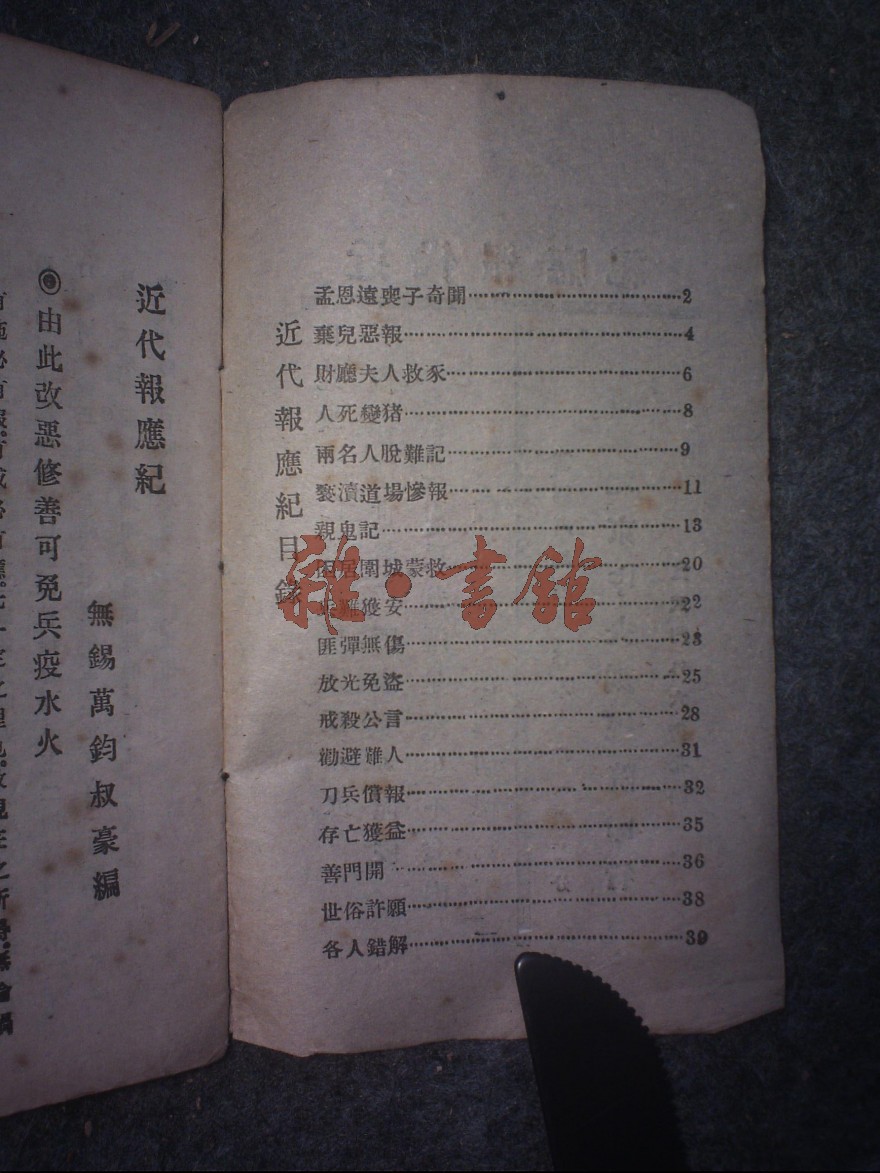 近代報應紀目錄
孟恩遠喪子奇聞 2
棄兒惡報 4
財廳夫人救豕 6
人死變猪 8
兩名人脫難記 9
褻瀆道場慘報 11
親鬼記 13
居圍城蒙救 20
難獲安 22
匪彈無傷 23
放光免盜 25
戒殺公言 28
勸避難人 31
刀兵償報 32
存亡獲益 35
善門開 36
世俗許願 38
各人錯解 39
近代報應紀
無錫萬鈞叔豪編
◉由此改惡修善可免兵疫水火
雜·書館